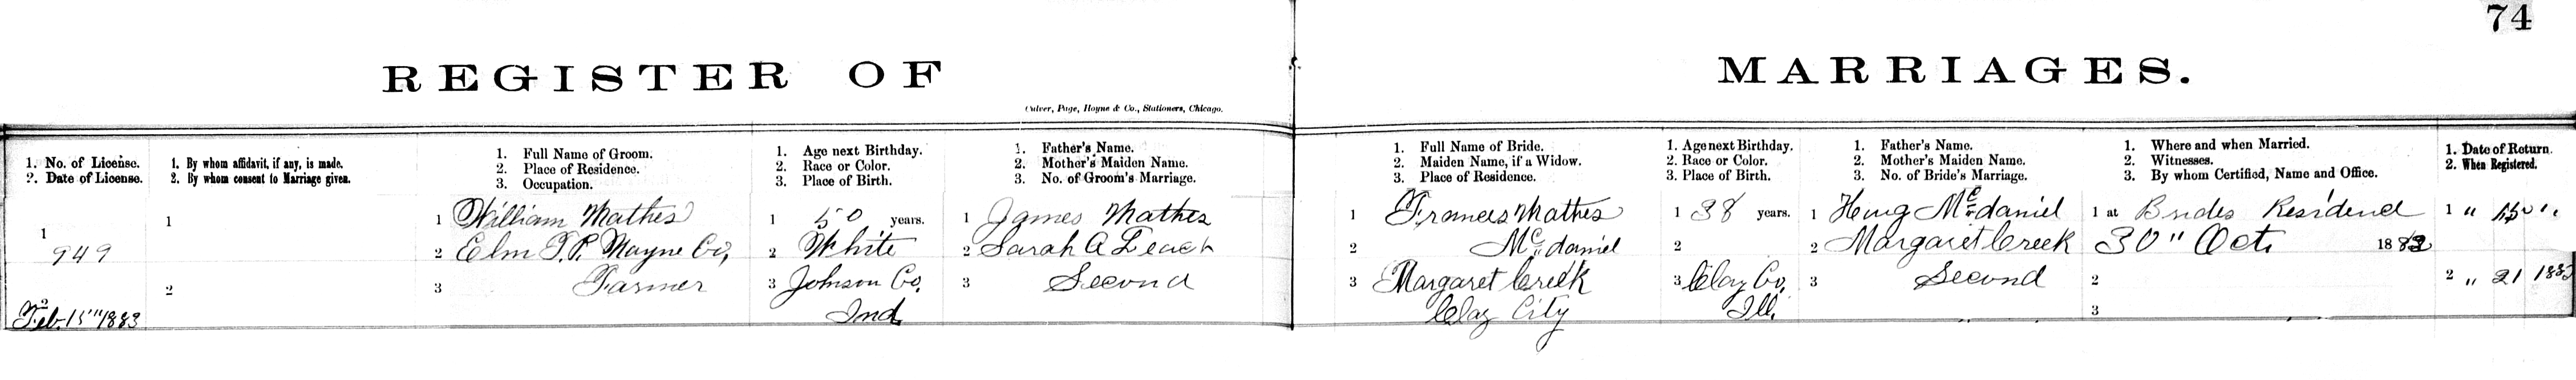 74
REGISTER OF MARRIAGES.
Culver, Page, Hoyne & Co., Stationers, Chicago.
1. No. of License.
2. Date of License.
1. By whom affidavit, if any, is made.
2. By whom consent to Marriage given.
1. Full Name of Groom.
2. Place of Residence.
3. Occupation.
1. Age next Birthday.
2. Race or Color.
3. Place of Birth.
1. Father's Name.
2. Mother's Maiden Name.
3. No. of Groom's Marriage.
1. Full Name of Bride.
2. Maiden Name, if a Widow.
3. Place of Residence.
1. Age next Birthday.
2. Race or Color.
3. Place of Birth.
1. Father's Name.
2. Mother's Maiden Name.
3. No. of Bride's Marriage.
1. Where and when Married.
2. Witnesses.
3. By whom Certified, Name and Office.
1. Date of Return.
2. When Registered.
1
949
2
Feb. 15" 1883
1
2
1 William Mathes
2 Elm T.P. Wayne Co,
3 Farmer
1 50 years.
2 White
3 Johnson Co.
Ind
1 James Mathes
2 Sarah A Leach
3 Second
1 Frances Mathes
2 Mc.daniel
3 Margaret Creek
Clay City
1 38 years.
2
3 Clay Co,
Ill.
1 Henry Mc.daniel
2 Margaret Creek
3 Second
1 at Brides Residend
30" Oct. 1882
2
3
1 "
2 " 21 1883